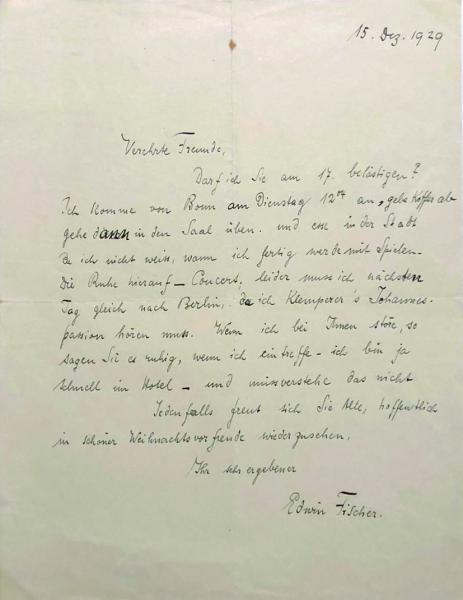 15. Dez. 1929
Verehrte Freunde,
Darf ich Sie am 17. belästigen?
Ich komme von Bonn am Dienstag 12 an, gebe Koffer ab
gehe dann in den Saal üben. und esse in der Stadt
da ich nicht weiss, wann ich fertig werde mit Spielen.
Die Ruhe hierauf – Concert, leider muss ich nächsten
Tag gleich nach Berlin, da ich Klemperer's Johannes-
passion hören muss. Wenn ich bei Ihnen störe, so
sagen Sie es ruhig, wenn ich eintreffe – ich bin ja
schnell im Hotel – und missverstehe das nicht
Jedenfalls freut sich Sie Alle, hoffentlich
in schöner Weihnachtsvorfreude wiederzusehen,
Ihr sehr ergebener
Edwin Fischer.